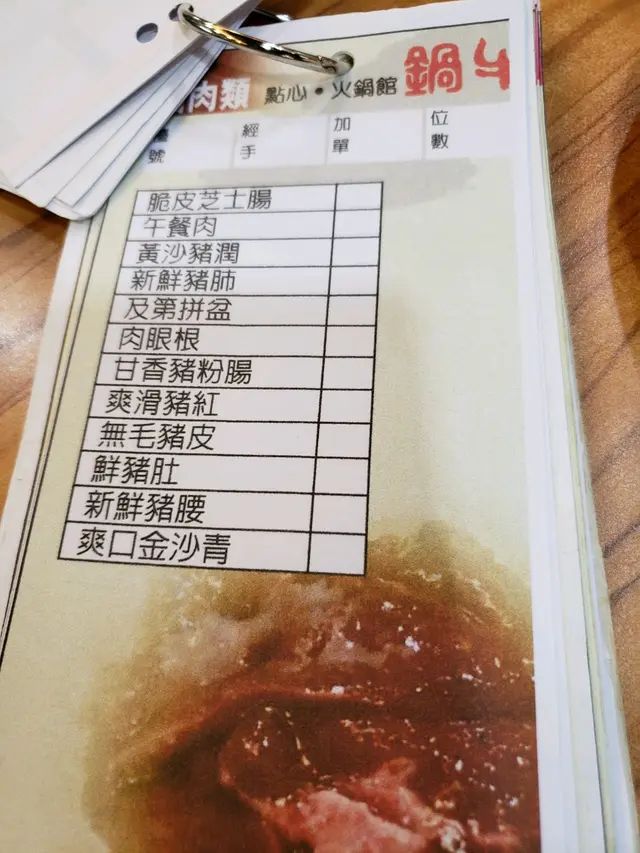 肉類 點心·火鍋館 鍋
號 經手 加單 位數
脆皮芝士腸
午餐肉
黃沙豬潤
新鮮豬肺
及第拼盆
肉眼根
甘香豬粉腸
爽滑豬紅
無毛豬皮
鮮豬肚
新鮮豬腰
爽口金沙青